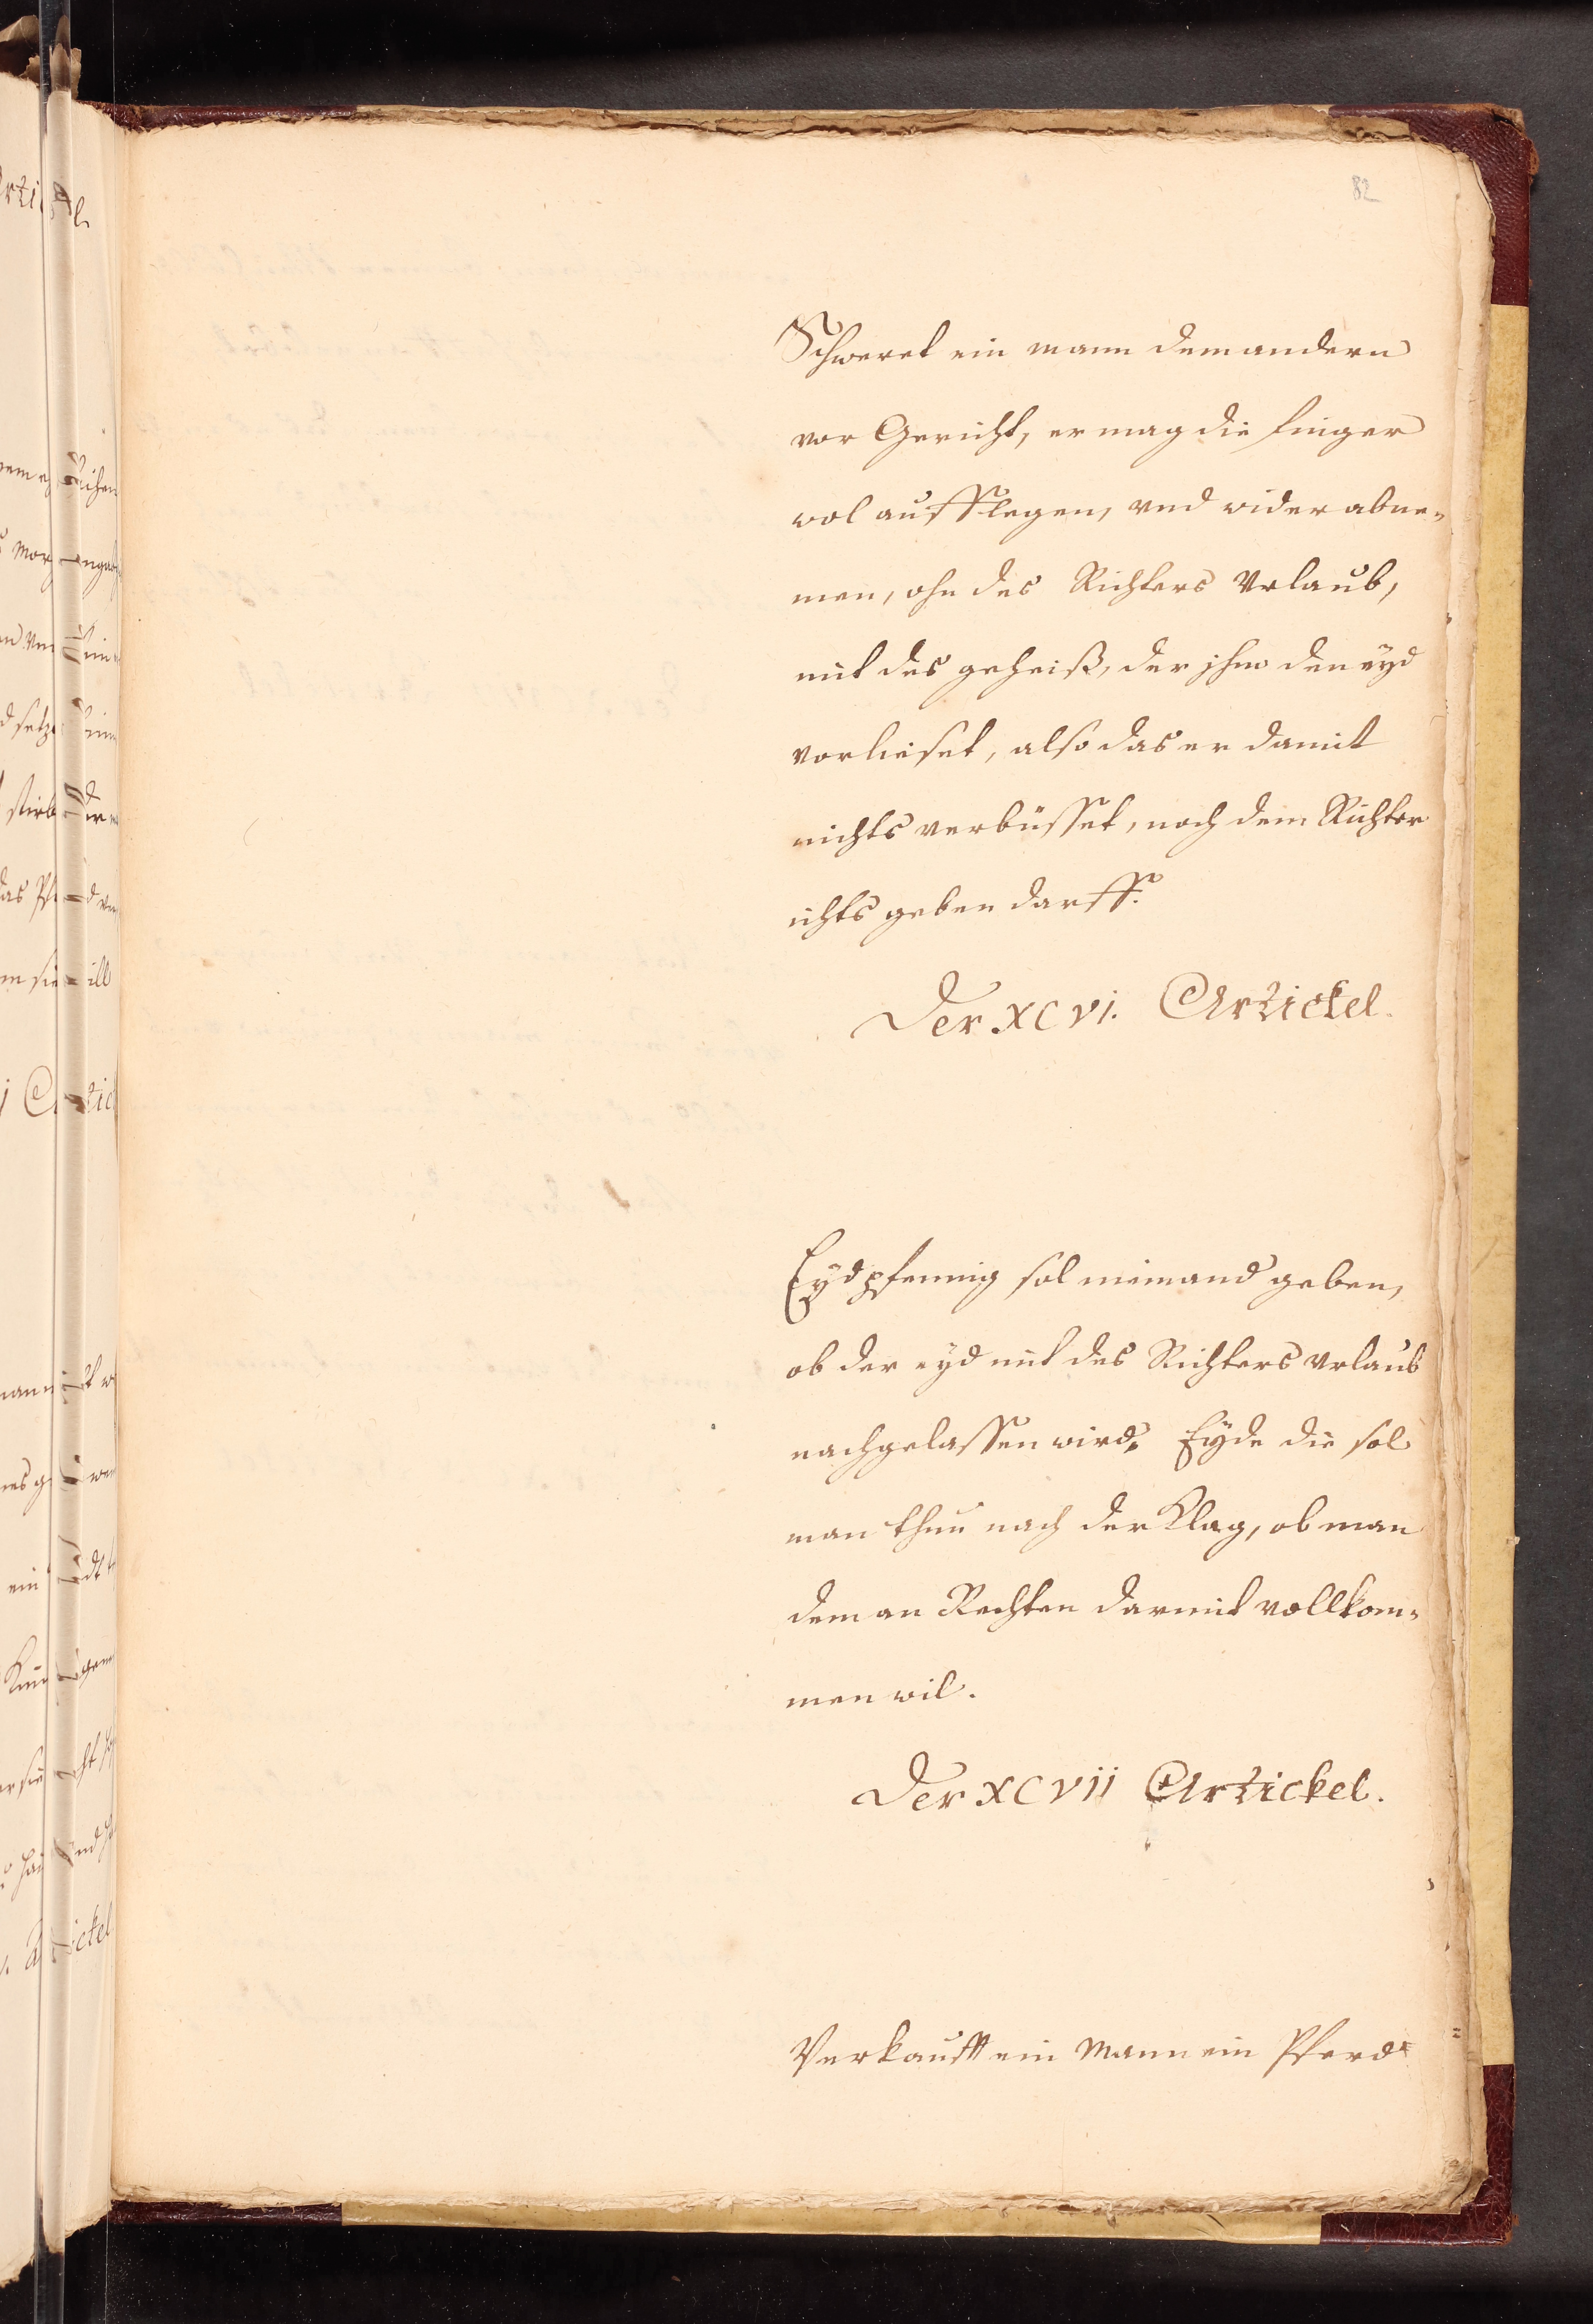 82
Schweret ein mann dem andern
vor Gericht, er mag die finger
wol aufflegen, vnd wider abne-
men, ohn des Richters Vrlaub,
mit des geheiß, der jhm den eyd
vorlieset, also das er damit
nichts verbüsset, noch dem Richter
ichts geben darff.
Der XCVI. Artickel.
Eydpfennig sol niemand geben,
ob der eyd mit des Richters vrlaub
nachgelassen wird. Eyde die sol
man thun nach der Klag, ob man
dem an Rechten darmit vollkom-
men wil.
Der XCVII Artickel.
Verkaufft ein Mann ein Pferd